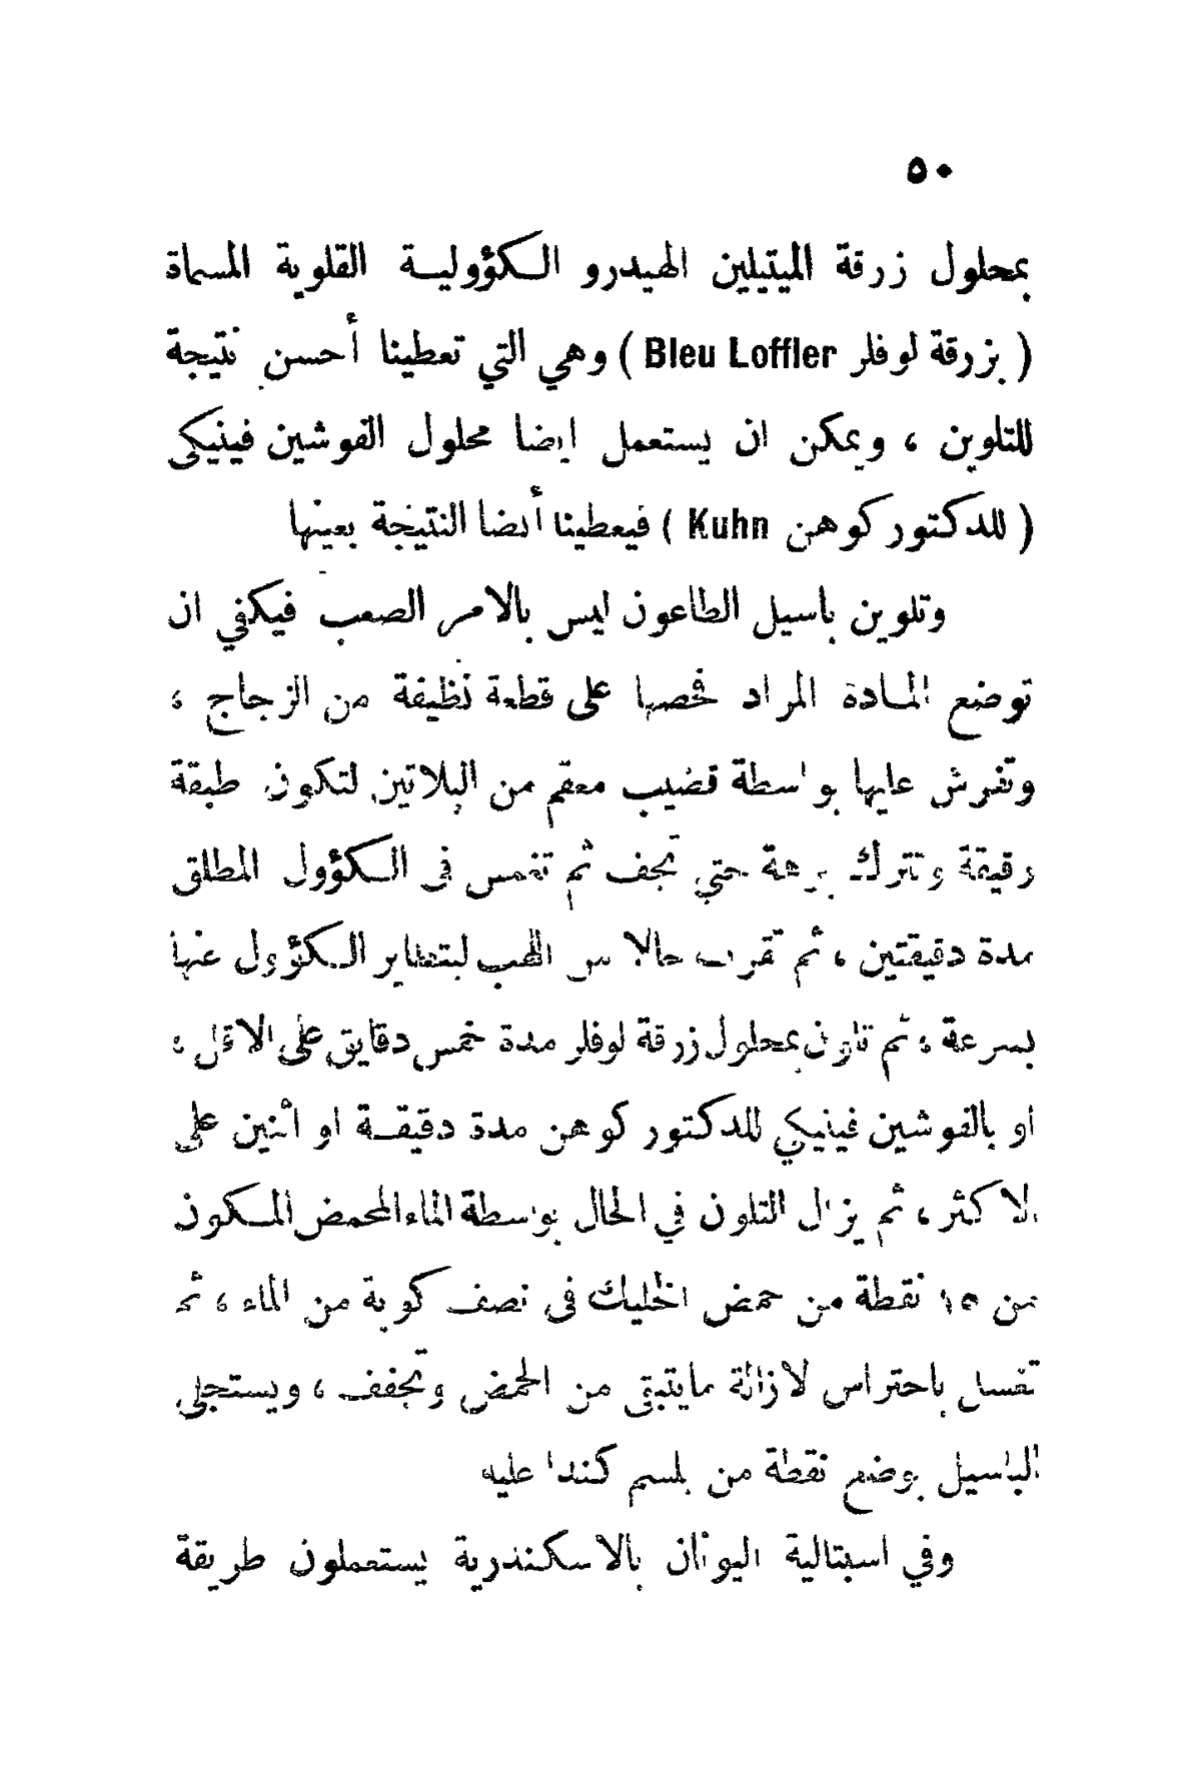 ٥٠
بمحلول زرقة الميتيلين الهيدرو الكؤولية القلوية المسماة
( بزرقة لوفلر Bleu Loffler ) وهي التي تعطينا أحسن نتيجة
للتلوين ، ويمكن ان يستعمل ايضا محلول الفوشين فينيكى
( للدكتور كوهن Kuhn ) فيعطينا أيضا النتيجة بعينها
وتلوين باسيل الطاعون ليس بالامر الصعب فيكفي ان
توضع المادة المراد فحصها على قطعة نظيفة من الزجاج ،
وتفرش عليها بواسطة قضيب معقم من البلاتين لتكون طبقة
رقيقة وتترك برهة حتي تجف ثم تغمس فى الكؤول المطلق
مدة دقيقتين ، ثم تقرب حالا من اللهب ليتطاير الكؤول عنها
بسرعة ، ثم تلون بمحلول زرقة لوفلر مدة خمس دقايق على الاقل ،
او بالفوشين فينيكي للدكتور كوهن مدة دقيقة او اثنين على
الاكثر ، ثم يزال التلون في الحال بواسطة الماء المحمض المكون
من ١٥ نقطة من حمض الخليك فى نصف كوبة من الماء ، ثم
تغسل باحتراس لازالة مايتبقى من الحمض وتجفف ، ويستجلى
الباسيل بوضع نقطة من بلسم كندا عليه
وفي اسبتالية اليونان بالاسكندرية يستعملون طريقة